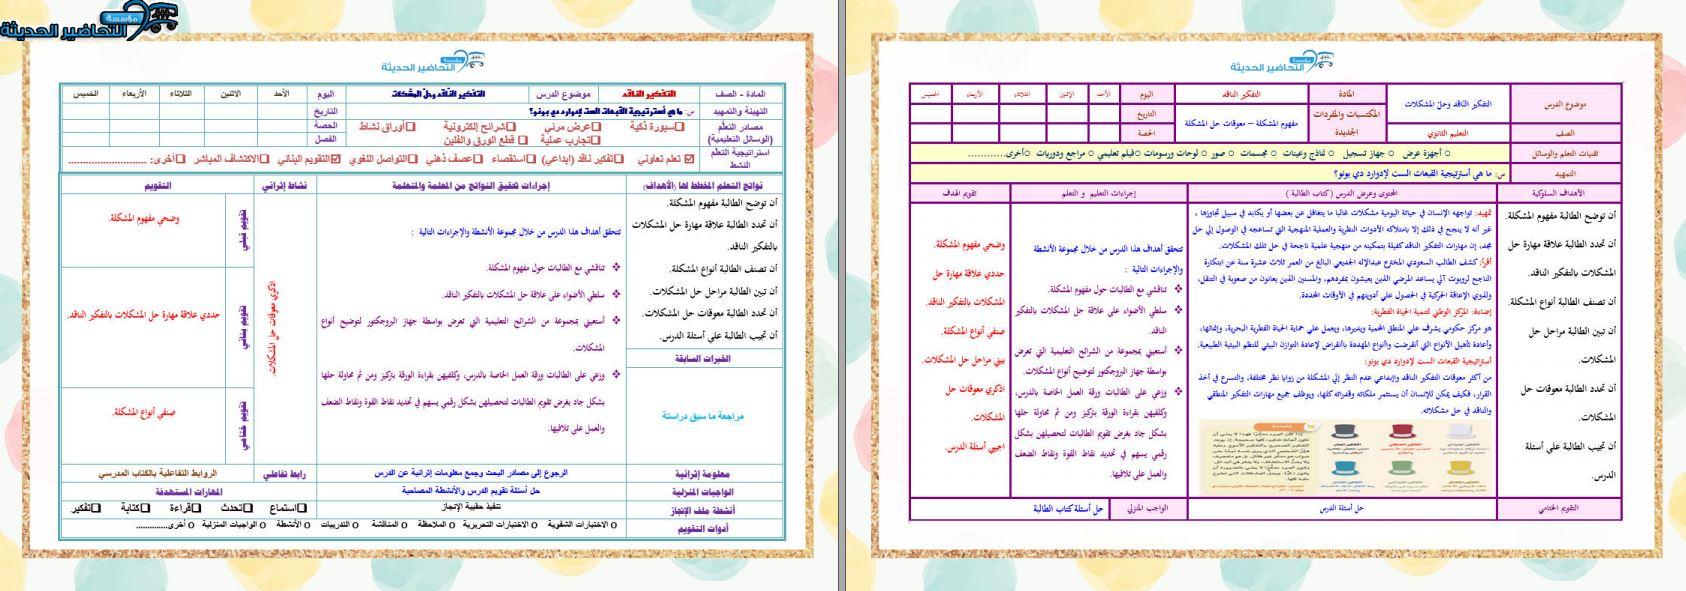 مؤسسة
التحاضير الحديثة
مؤسسة
التحاضير الحديثة
موضوع الدرس
التفكير الناقد وحلّ المشكلات
المادة
التفكير الناقد
اليوم
الأحد
الإثنين
الثلاثاء
الأربعاء
الخميس
الصف
التعليم الثانوي
المكتسبات والمفردات الجديدة
مفهوم المشكلة – معوقات حل المشكلة
التاريخ
الحصة
تقنيات التعلم والوسائل
○ أجهزة عرض ○ جهاز تسجيل ○ نماذج وعينات ○ مجسمات ○ صور ○ لوحات ورسومات ○ فيلم تعليمي ○ مراجع ودوريات ○ أخرى............
التمهيد
س: ما هي أستراتيجية القبعات الست لإدوارد دي بونو؟
الأهداف السلوكية
المحتوى وعرض الدرس ( كتاب الطالبة )
إجراءات التعليم و التعلم
تقويم الهدف
أن توضح الطالبة مفهوم المشكلة.
أن تحدد الطالبة علاقة مهارة حل
المشكلات بالتفكير الناقد.
أن تصنف الطالبة أنواع المشكلة.
أن تبين الطالبة مراحل حل
المشكلات.
أن تحدد الطالبة معوقات حل
المشكلات.
أن تجيب الطالبة على أسئلة
الدرس.
تمهيد: تواجهه الإنسان في حياتة اليومية مشكلات غالبا ما يتغافل عن بعضها أو يكابد في سبيل تجاوزها ،
غير أنه لا ينجح في ذلك إلا بامتلاكه الأدوات النظرية والعملية المنهجية التي تساعده في الوصول إلي حل
مجد، إن مهارات التفكير الناقد كفيلة بتمكينه من منهجية علمية ناجحة في حل تلك المشكلات.
أقرأ: كشف الطالب السعودي المخترع عبدالإله الجديعي البالغ من العمر ثلاث عشرة سنة عن ابتكارة
الناجح لروبوت آلي يساعد المرضي الذين يعيشون بمفردهم، والمسنين الذين يعانون من صعوبة في التنقل،
ولذوي الإعاقة الحركية في الحصول علي أدويتهم في الأوقات المحددة.
إضاءة: المركز الوطني لتنمية الحياة الفطرية:
هو مركز حكومي يشرف علي المناطق المحمية ويديرها، ويعمل علي حماية الحياة الفطرية البحرية، وإنمائها،
وأعادة تأهيل الأنواع التي أنقرضت والأنواع المهددة بالأنقراض لإعادة التوازن البيئي للنظم البيئية الطبيعية.
أستراتيجية القبعات الست لإدوارد دي بونو:
من أكثر معوقات التفكير الناقد والإبداعي عدم النظر إلي المشكلة من زوايا نظر مختلفة، والتسرع في أخذ
القرار، فكيف يمكن للإنسان أن يستثمر ملكاته وقدراته كلها، ويوظف جميع مهارات التفكير المنطقي
والناقد في حل مشكلاته.
تتحقق أهداف هذا الدرس من خلال مجموعة الأنشطة
والإجراءات التالية :
❖ تناقشي مع الطالبات حول مفهوم المشكلة.
❖ سلطي الأضواء على علاقة حل المشكلات بالتفكير
الناقد.
❖ أستعيني بمجموعة من الشرائح التعليمية التي تعرض
بواسطة جهاز البروجكتور لتوضيح أنواع المشكلات.
❖ وزعي على الطالبات ورقة العمل الخاصة بالدرس،
وكلفيهن بقراءة الورقة بتركيز ومن ثم محاولة حلها
بشكل جاد بغرض تقويم الطالبات لتحصيلهن بشكل
رقمي يسهم في تحديد نقاط القوة ونقاط الضعف
والعمل على تلافيها.
وضحي مفهوم المشكلة.
حددي علاقة مهارة حل
المشكلات بالتفكير الناقد.
صنفي أنواع المشكلة.
بيني مراحل حل المشكلات.
اذكري معوقات حل
المشكلات.
اجيبي أسئلة الدرس.
التقويم الختامي
حل أسئلة الدرس
الواجب المنزلي
حل أسئلة كتاب الطالبة
مؤسسة
التحاضير الحديثة
المادة – الصف
التفكير الناقد
موضوع الدرس
التفكير الناقد وحل المشكلات
اليوم
الأحد
الاثنين
الثلاثاء
الأربعاء
الخميس
التهيئة والتمهيد
س: ما هي أستراتيجية القبعات الست لإدوارد دي بونو؟
التاريخ
مصادر التعلّم
(الوسائل التعليمية)
❑سبورة ذكية ❑عرض مرئي ❑شرائح إلكترونية ❑أوراق نشاط
❑تجارب عملية ❑ قطع الورق والفلين
الحصة
الفصل
استراتيجية التعلّم
النشط
☑ تعلم تعاوني ❑تفكير ناقد (إبداعي) ❑استقصاء ❑عصف ذهني ❑التواصل اللغوي ☑التقويم البنائي ❑الاكتشاف المباشر ❑أخرى: ..........................
نواتج التعلم المخطط لها (الأهداف)
إجراءات تحقيق النواتج من المعلمة والمتعلمة
نشاط إثرائي
التقويم
أن توضح الطالبة مفهوم المشكلة.
أن تحدد الطالبة علاقة مهارة حل المشكلات
بالتفكير الناقد.
أن تصنف الطالبة أنواع المشكلة.
أن تبين الطالبة مراحل حل المشكلات.
أن تحدد الطالبة معوقات حل المشكلات.
أن تجيب الطالبة على أسئلة الدرس.
الخبرات السابقة
مراجعة ما سبق دراستة
تتحقق أهداف هذا الدرس من خلال مجموعة الأنشطة والإجراءات التالية :
❖ تناقشي مع الطالبات حول مفهوم المشكلة.
❖ سلطي الأضواء على علاقة حل المشكلات بالتفكير الناقد.
❖ أستعيني بمجموعة من الشرائح التعليمية التي تعرض بواسطة جهاز البروجكتور لتوضيح أنواع
المشكلات.
❖ وزعي على الطالبات ورقة العمل الخاصة بالدرس، وكلفيهن بقراءة الورقة بتركيز ومن ثم محاولة حلها
بشكل جاد بغرض تقويم الطالبات لتحصيلهن بشكل رقمي يسهم في تحديد نقاط القوة ونقاط الضعف
والعمل على تلافيها.
اذكري معوقات حل المشكلات.
تقويم قبلي
وضحي مفهوم المشكلة.
تقويم بنائي
حددي علاقة مهارة حل المشكلات بالتفكير الناقد.
تقويم ختامي
صنفي أنواع المشكلة.
معلومة إثرائية
الرجوع إلى مصادر البحث وجمع معلومات إثرائية عن الدرس
رابط تفاعلي
الروابط التفاعلية بالكتاب المدرسي
الواجبات المنزلية
حل أسئلة تقويم الدرس والأنشطة المصاحبة
المهارات المستهدفة
أنشطة ملف الإنجاز
تنفيذ حقيبة الإنجاز
❑استماع ❑تحدث ❑قراءة ❑كتابة ❑تفكير
أدوات التقويم
○ الاختبارات الشفوية ○ الاختبارات التحريرية ○ الملاحظة ○ المناقشة ○ التدريبات ○ الأنشطة ○ الواجبات المنزلية ○ أخرى.............